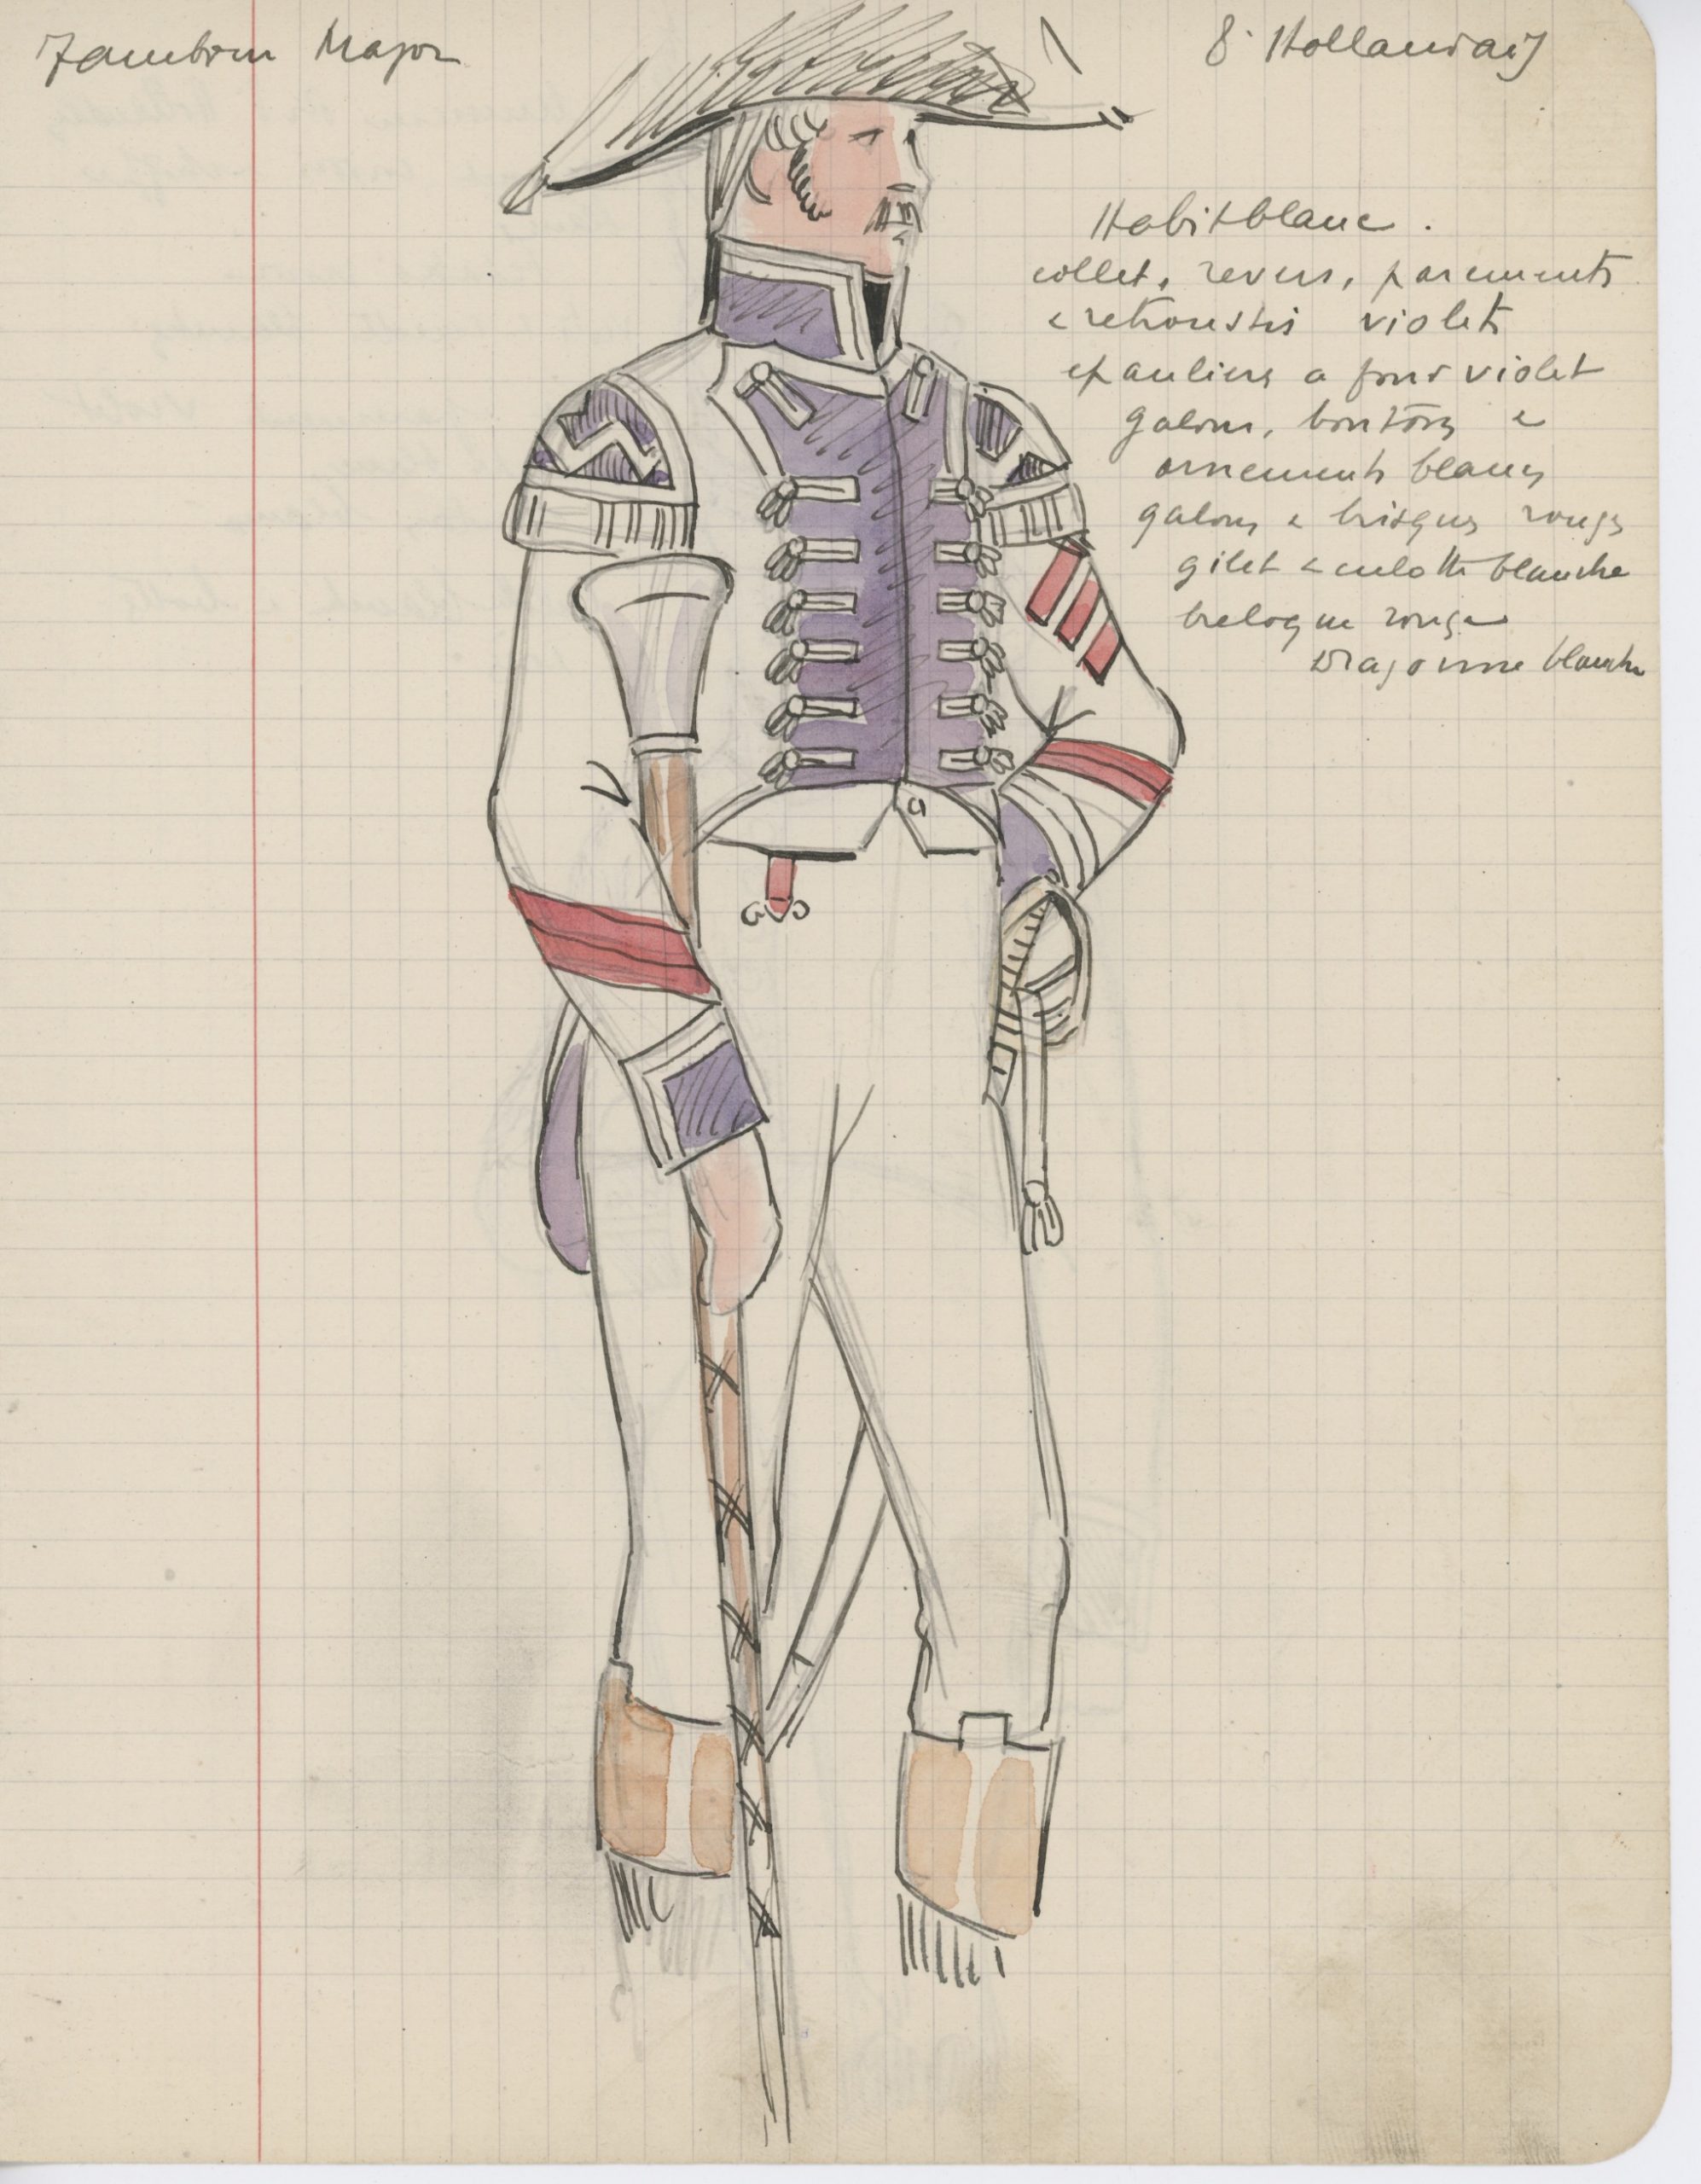 Tambour Major
8ᵉ Hollandais
Habit blanc.
collet, revers, parements
& retroussis violets
epauliers a fond violet
galons, boutons &
ornements blancs
galons & brisques rouges
gilet & culotte blanche
breloque rouge
Dragonne blanche